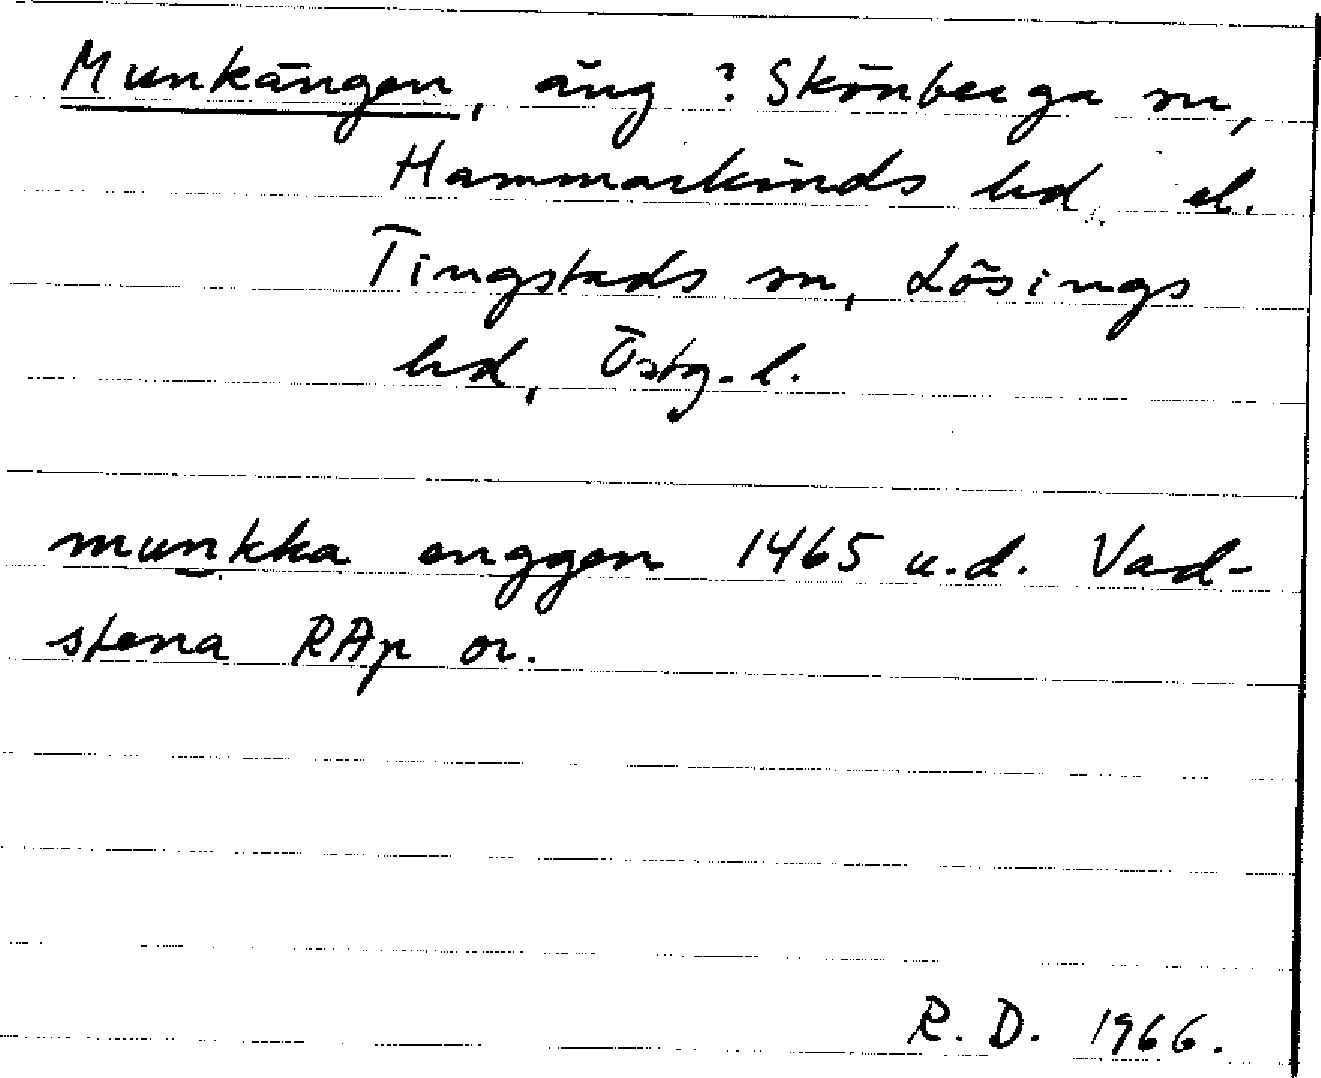 Munkängen, äng ? Skönberga sn,
Hammarkinds hd, el.
Tingstads sn, Lösings
hd, Östg. l.
munkka enggen 1465 u.d. Vad-
stena RAp or.
R. D. 1966.